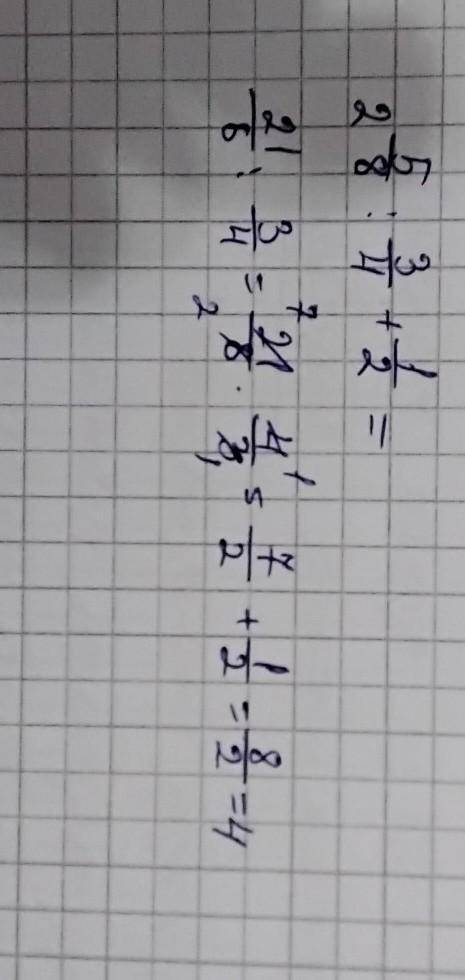 2 5/8 : 3/4 + 1/2 =
21/8 : 3/4 = 21/8 · 4/3 = 7/2 + 1/2 = 8/2 = 4